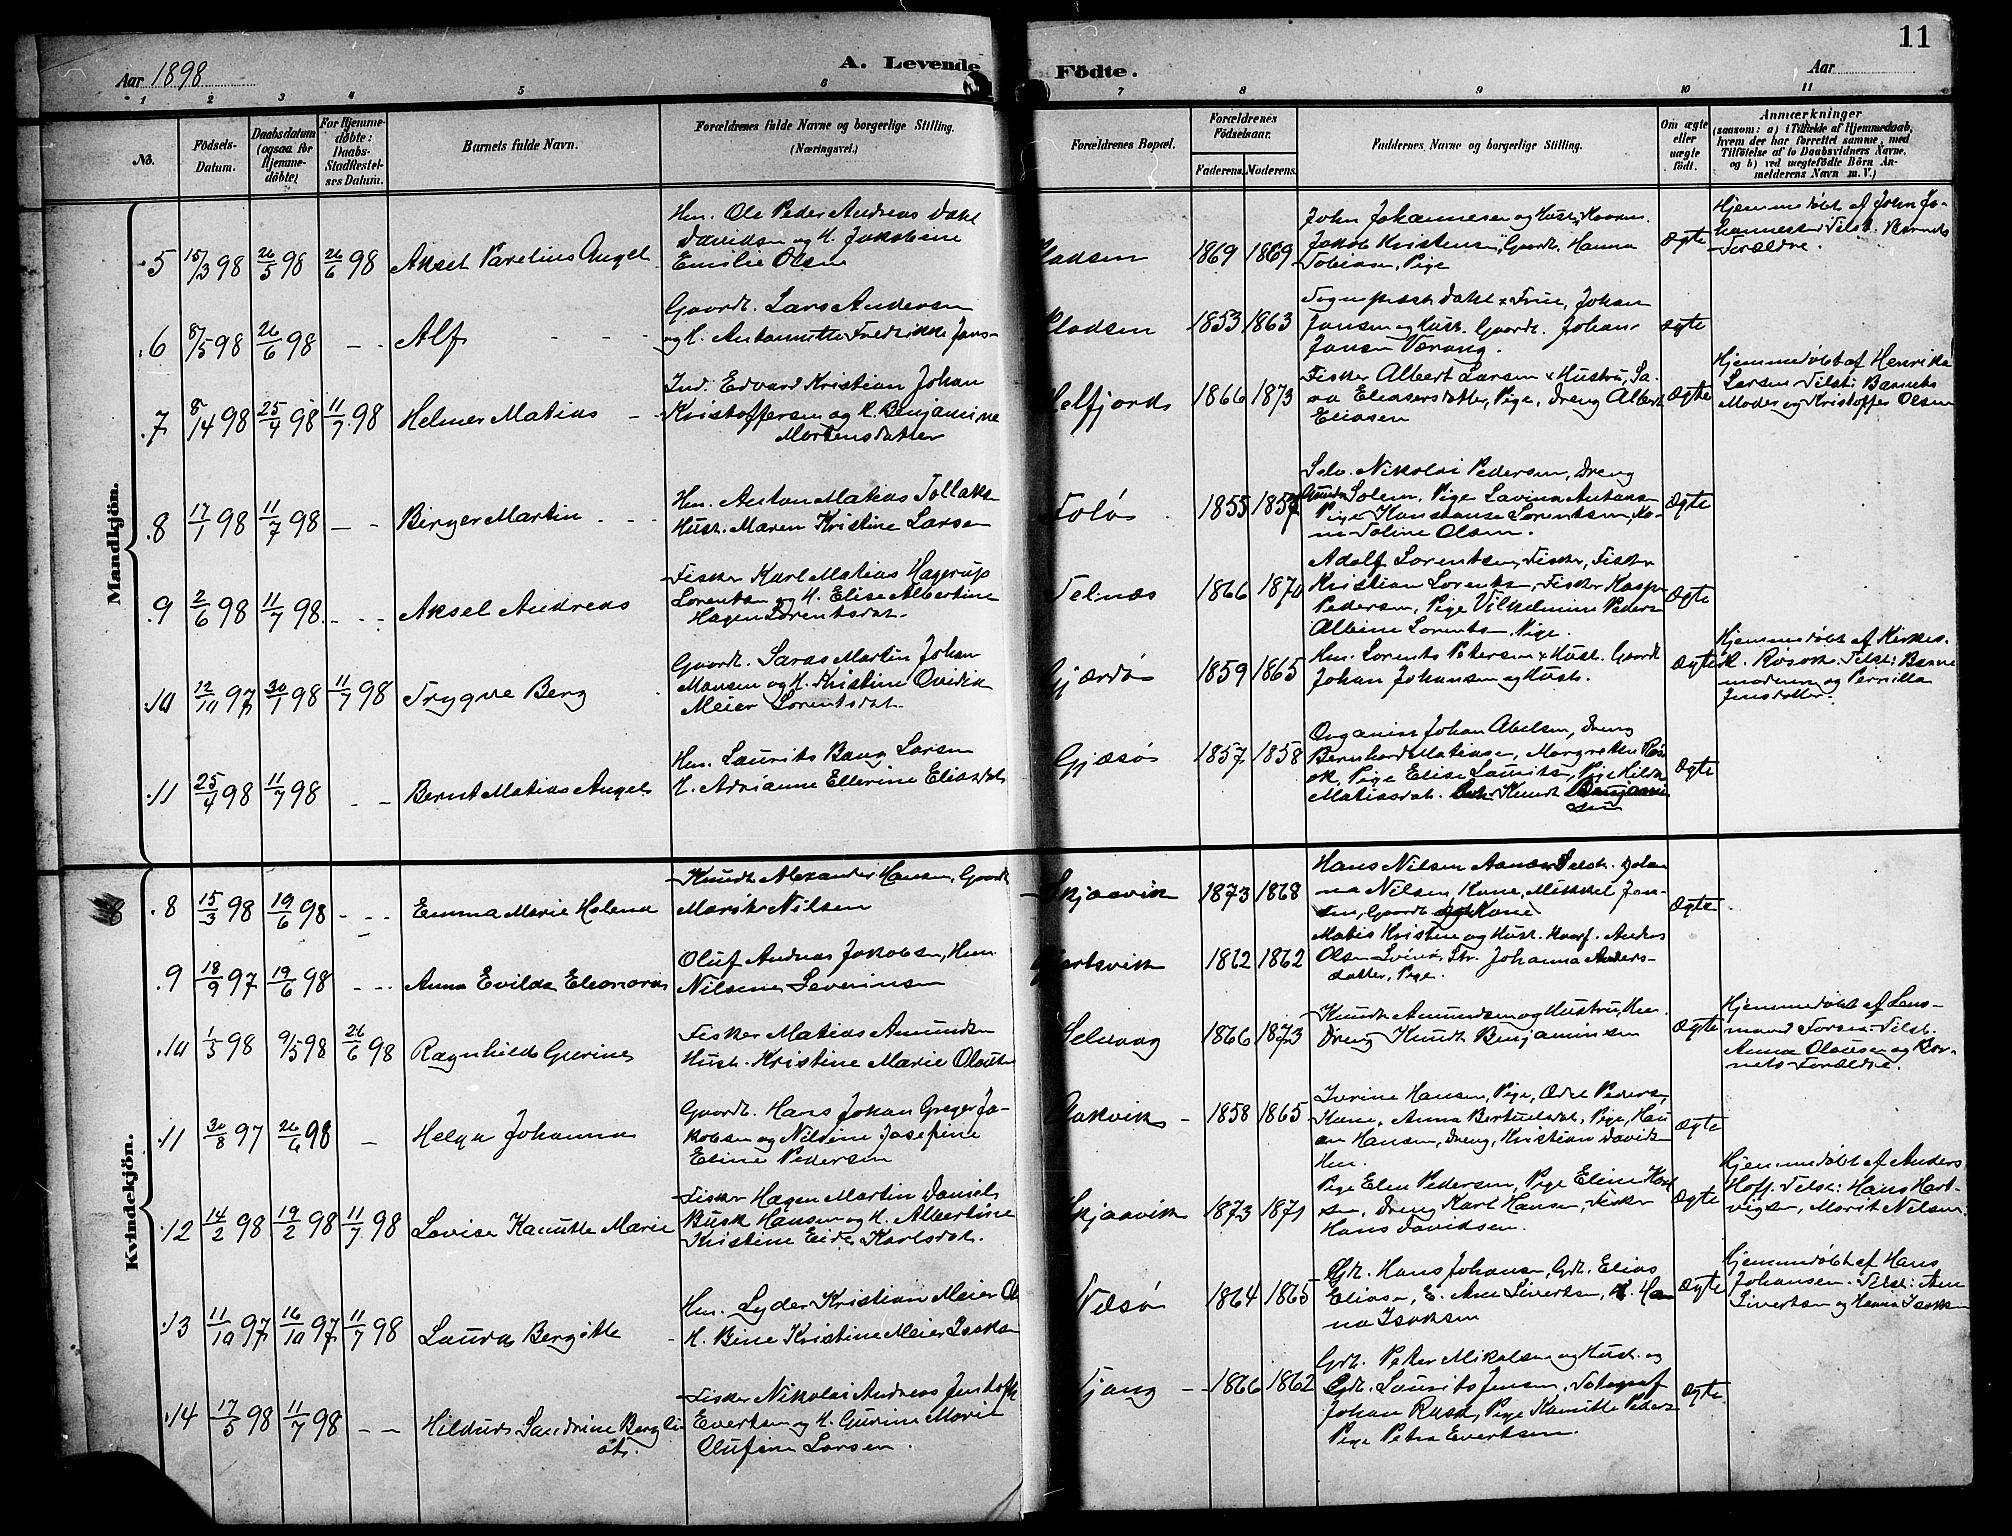 11
Aar 1898
A. Levende
Födte.
Aar
1 2 3 4 5 6 7 8 9 10 11
No.
Födsels-
Datum.
Daabsdatum
(ogsaa for
Hjemme-
döbte)
For Hjemme-
döbte:
Daabs-
Stadfæstel-
ses Datum.
Barnets fulde Navn.
Forældrenes fulde Navne og borgerlige Stilling.
(Næringsvei.)
Forældrenes Bopæl.
Forældrenes
Födselsaar.
Faderens.
Moderens.
Faddernes Navne og borgerlige Stilling.
Om ægte
eller
uægte
födt.
Anmærkninger
(saasom: a) i Tilfælde af Hjemmedaab,
hvem der har forrettet samme, med
Tilföielse af to Daabsvidners Navne,
og b) ved uægtefödte Börn An-
melderens Navn m. V.)
Mandkjön.
5 15/3 98 26/5 98 26/6 98 Aksel Parelius Angel
Hm. Ole Peder Andreas Dahl
Davidsen og H. Jakobine
Emilie Olsen
Pladsen 1869 1869
John Johannesen og Hust.
Jakob Kristensen, Gaardb. Hanna
Tobiasen, Pige
ægte
Hjemmedöbt af John Jo-
hannesen Tilst. Barnets
Forældre.
6 8/5 98 26/6 98 - - Alf
Gaardb. Lars Andersen
og H. Antonette Fredrikke Jans-
Pladsen 1853 1863
Sogneprest Dahl + Frue, Johan
Jansen og Hust. Gaardb. Johan
Jansen Værang.
ægte
7 8/14 98 25/4 98 11/7 98 Helmer Matias
Ind. Edvard Kristian Johan
Kristoffersen og H. Benjamine
Mortensdatter
Melfjord 1866 1873
Fisker Albert Larsen + Hustru, Sa-
ra Eliasersdatter, Pige, Dreng Albert
Eliasen
ægte
Hjemmedöbt af Henrikke
Larsen Tilst: Barnets
Moder og Kristoffer Olsen
8 17/1 98 11/7 98 - - Berger Martin
Hm. Anton Matias Tollaks
Hust. Maren Kristine Larsen
Selö 1855 1857
Selv. Nikolai Pedersen, Dreng
Solem, Pige Lavina Antons
Pige Konstanse Lorentsen, Ko-
ne Toline Olsen.
ægte
9 2/6 98 11/7 98 - - Aksel Andreas
Fisker Karl Matias Hagerup
Lorentsen og H. Elise Albertine
Hagen Lorentsdat.
Telnæs 1866 1870
Adolf Lorentsen, Fisker, Fisker
Kristian Lorents, Fisker Kasper
Pedersen, Pige Vilhelmine Peders
Albine Lorents, Pige.
ægte
10 12/10 97 30/1 98 11/7 98 Trygve Berg
Gaardb. Laras Martin Johan
Monsen og H. Kristine Ovidia
Meier Lorentsdat.
Gjærdö 1859 1865
Hm. Lorents Petersen + Hust. Gaardb
Johan Johansen og Hust.
ægte
Hjemmedöbt af Kirkes.
K. Rösok. Tilst: Barne
moderen og Pernilla
Jensdatter.
11 25/4 98 11/7 98 - - Bernt Matias Angel
Hm. Laurits Bang Larsen
H. Adrianne Ellerine Eliasdat
Gjæsö 1857 1858
Organist Johan Abelsen, Dreng
Bernhard Matiasen, Margrethe Rös
ok, Pige Elise Laurits, Pige Hilda
Matiasdat. Knudt Benjamin
sen
ægte
Kvindekjön.
8 15/3 98 19/6 98 - - Emma Marie Helena
Knudt Alexander Hansen, Gaardb
Marit Nilsen
Skjaavik 1873 1868
Hans Nilsen Aanæs Selvst. Johan
na Nilsen, Kone, Mikkel Jan-
sen, Gaardb og Kone
ægte
9 18/9 97 19/6 98 - - Anna Evilda Eleonora
Oluf Andreas Jakobsen, Hm.
Nilsine Severinsen
1862 1862
Matis Kristine og Hust. Anders
Olsen Johanna Anders-
datter, Pige.
10 1/3 98 9/5 98 26/6 98 Ragnhild Gurine
Fisker Matias Amundsen
Hust. Kristine Marie Olaus
Selvaag 1866 1873
Knudt Amundsen og Hustru, Hm.
Dreng Knudt Benjaminsen
ægte
Hjemmedöbt af Lens-
mand Forsen Tilst.
Anna Olausen og Bar-
nets Forældre.
11 30/8 97 26/6 98 - Helga Johanna
Gaardb. Hans Johan Greger Ja-
kobsen og Nildine Josefine
Eline Pedersen
Aakvik 1858 1865
Iverine Hansen, Pige, Odel Peders,
Kone, Anna Bertuelsdat, Pige, Han
an Hansen, Dreng, Kristian Davids
Hm.
ægte
12 14/2 98 19/2 98 11/7 98 Lovise Kamitte Marie
Fisker Hagen Martin Daniel
Busk Hansen og H. Albertine
Kristine Eide Karlsdat.
Skjaavik 1873 1871
Pige Elen Pedersen, Pige Eline Karl
sen, Dreng Karl Hansen, Fisker
Hans Davidsen.
ægte
Hjemmedöbt af Anders
Hoff. Tilst: Hans Hart-
vigsen, Marit Nilsen.
13 11/10 97 16/10 97 11/7 98 Laura Bergitte
Hm. Lyder Kristian Meier Ol
H. Bine Kristine Meier Isaks
Næsö 1864 1865
Gdb. Hans Johansen, Gdb. Elias
Eliasen, E. Ane Sivertsen, Han
na Isaksen
ægte
Hjemmedöbt af Hans
Johansen. Tilst: Ane
Sivertsen og Hanna Isaksen
14 17/5 98 11/7 98 - - Hildur Sandrine Bergli-
ot.
Fisker Nikolai Andreas Jentoft
Evertsen og H. Gurine Marit
Olufine Larsen.
Tjong 1866 1862
Gdb. Peter Mikalsen og Hust. og
Gdb. Laurits Jensen, Fotograf
Johan Rask, Pige Kamitte Peders
Pige Petra Evertsen.
ægte